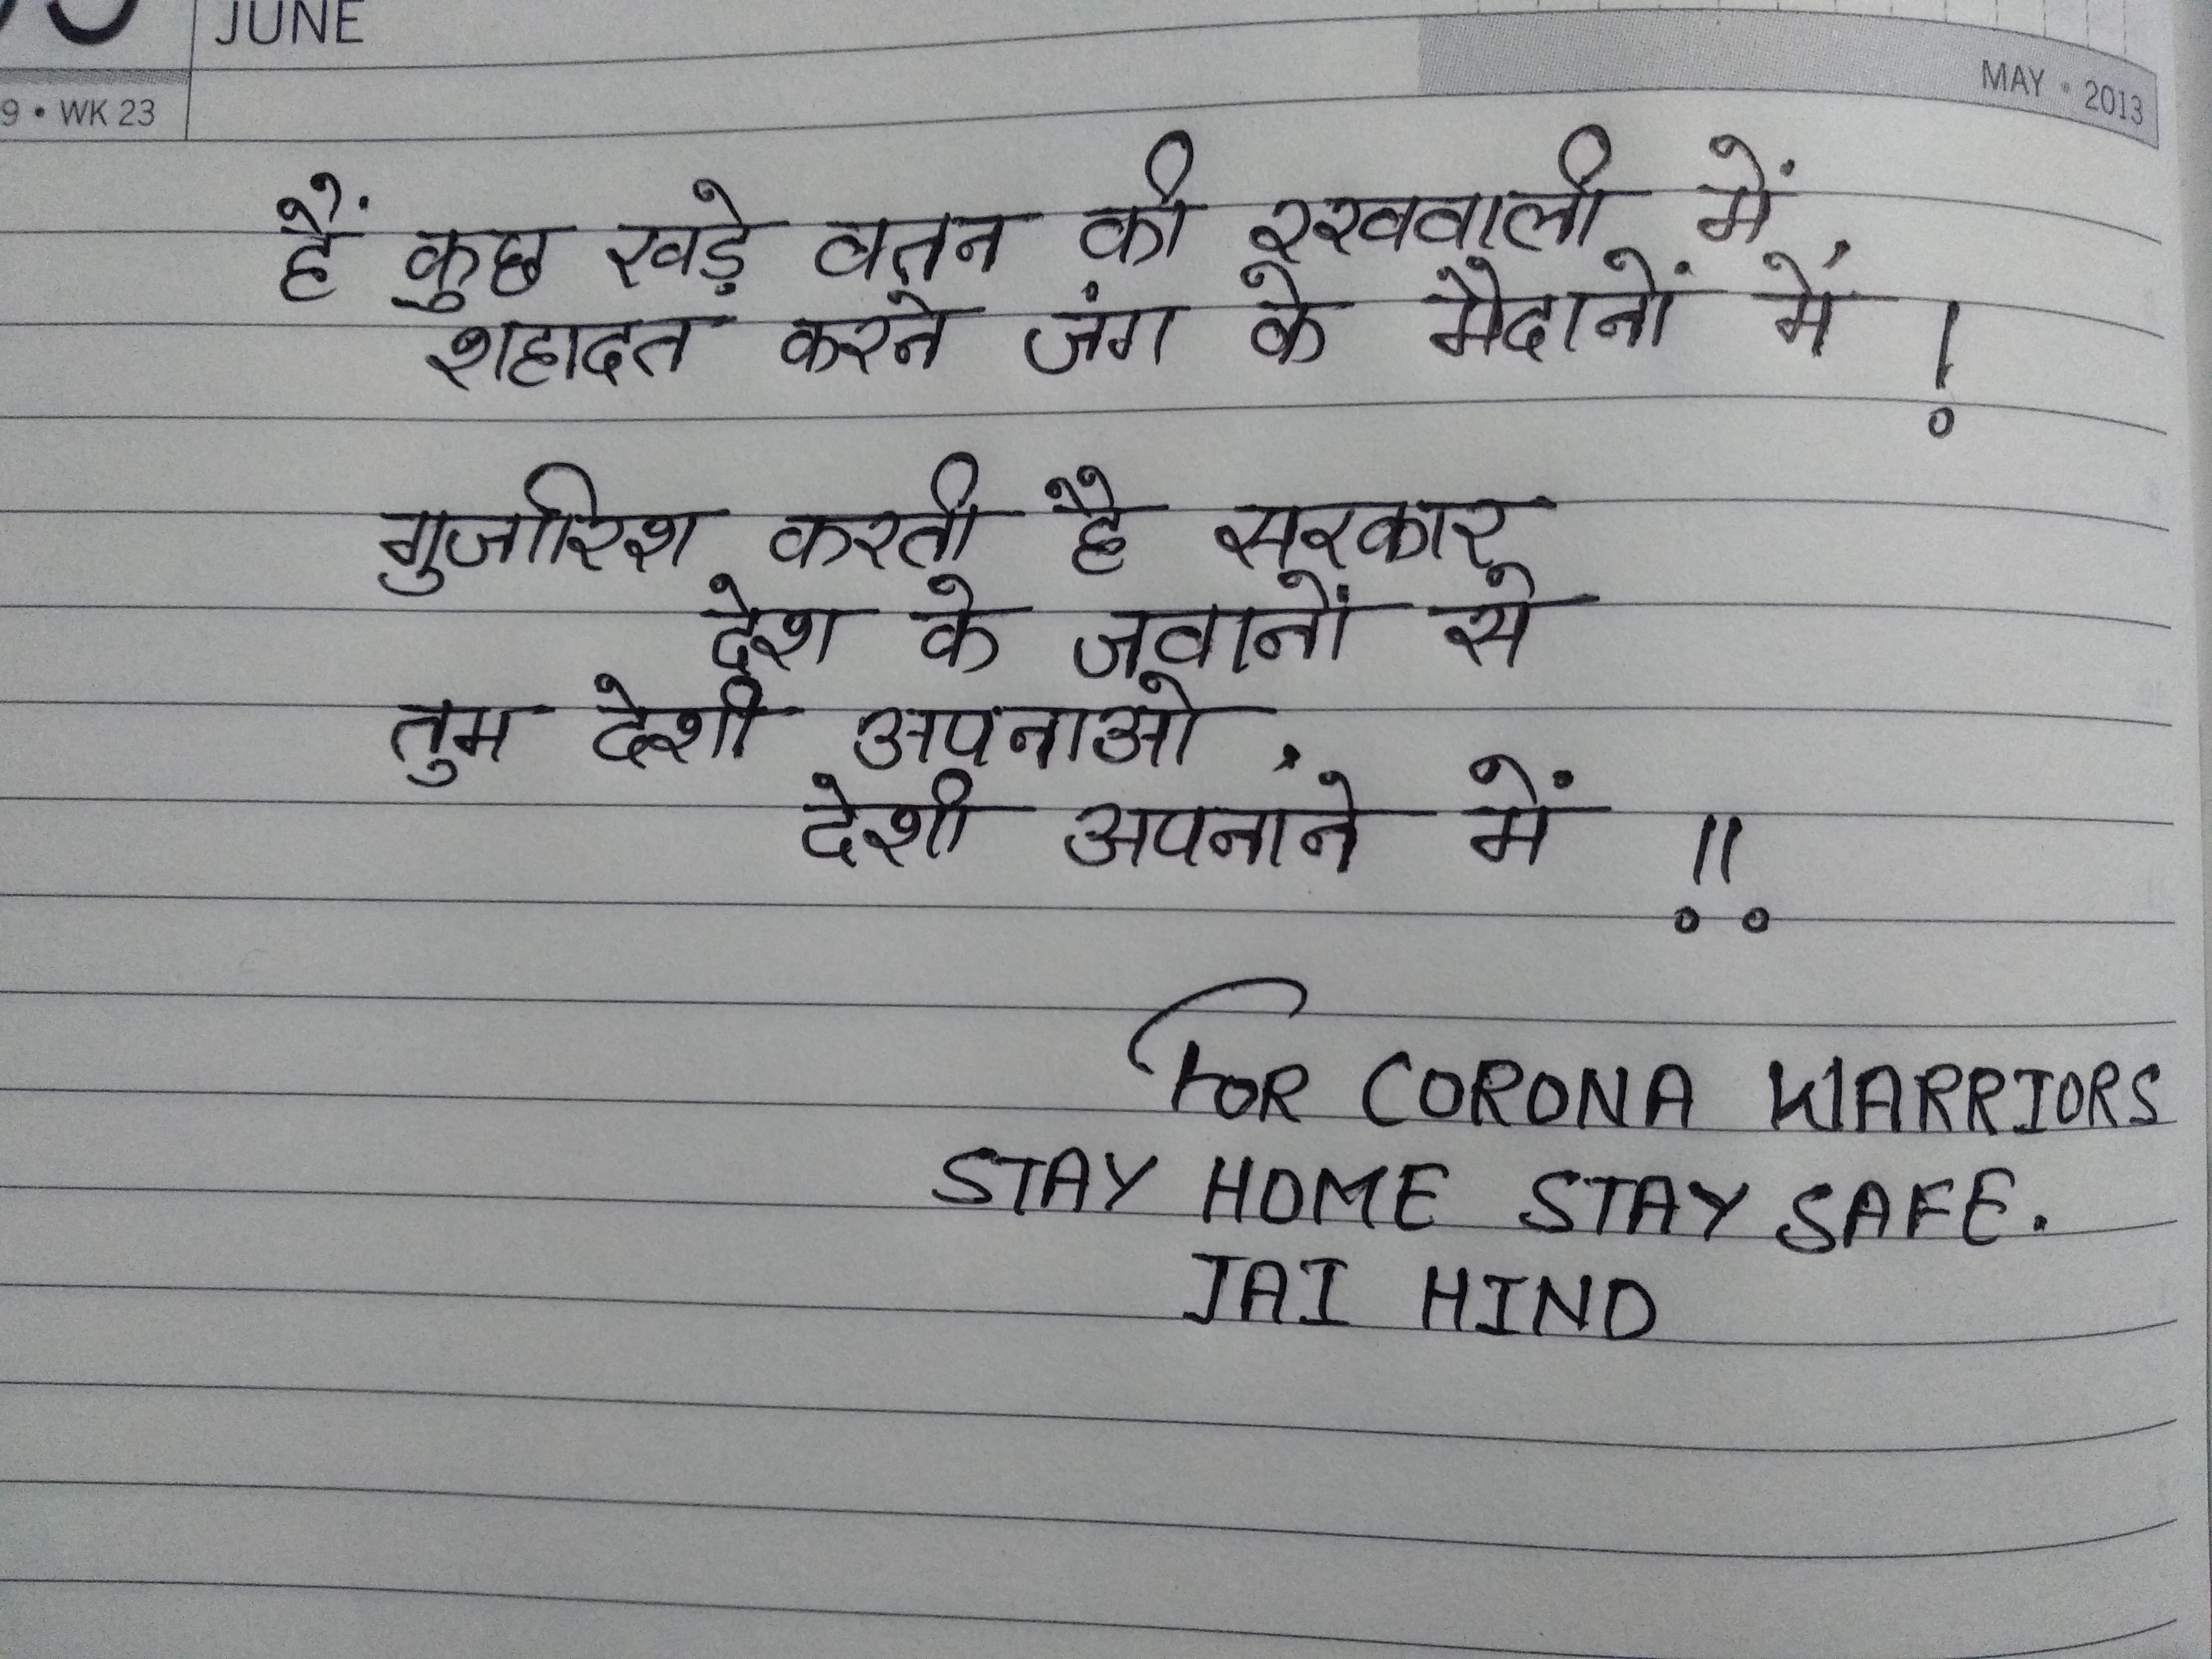 JUNE
9 • WK 23
MAY • 2013
हैं कुछ खड़े वतन की रखवाली में,
शहादत करने जंग के मैदानों में !
गुजारिश करती है सरकार
देश के जवानों से
तुम देशी अपनाओ,
देशी अपनाने में !!
FOR CORONA WARRIORS
STAY HOME STAY SAFE.
JAI HIND